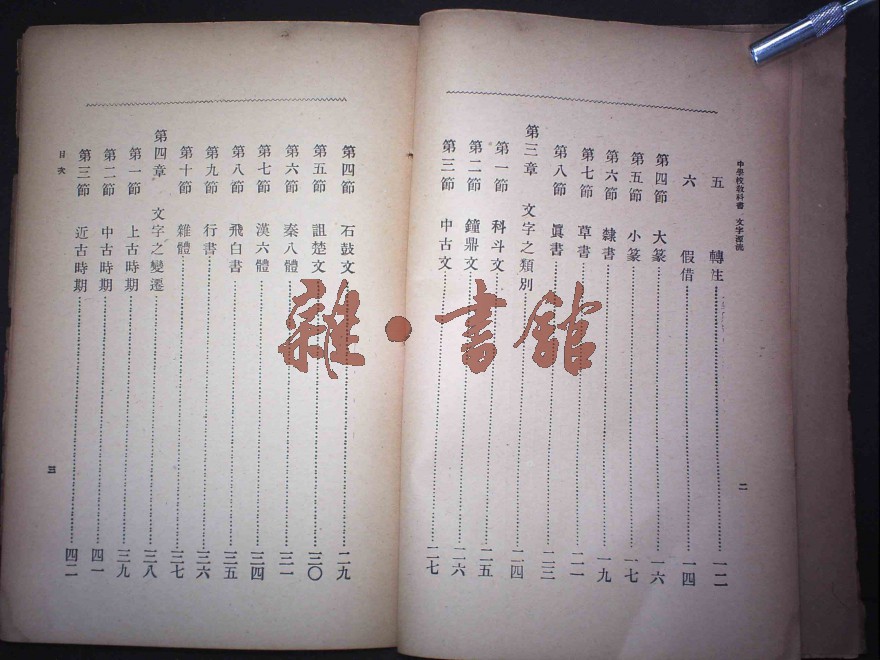 中學校教科書 文字源流
二
五 轉注 一二
六 假借 一四
第四節 大篆 一六
第五節 小篆 一七
第六節 隸書 一九
第七節 草書 二一
第八節 眞書 二三
第三章 文字之類別 二四
第一節 科斗文 二五
第二節 鐘鼎文 二六
第三節 中古文 二七
第四節 石鼓文 二九
第五節 詛楚文 三〇
第六節 秦八體 三一
第七節 漢六體 三四
第八節 飛白書 三五
第九節 行書 三六
第十節 雜體 三七
第四章 文字之變遷 三八
第一節 上古時期 三九
第二節 中古時期 四一
第三節 近古時期 四二
目次
三
雜·書館